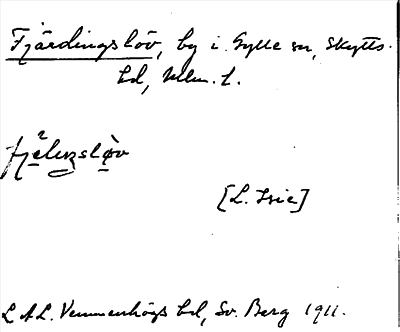 Fjärdingslöv, by i Gylle sn, Skytts
hd, Mlm. l.
[L. Isie]
L A L. Vemmenhögs hd, Sv. Berg 1911.